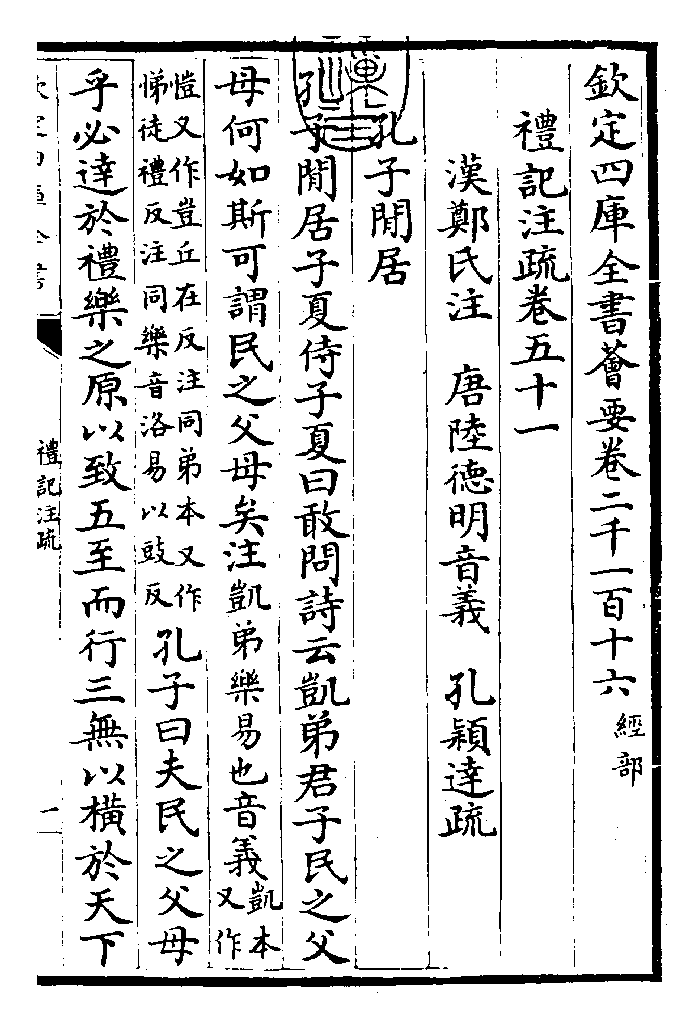 欽定四庫全書薈要卷二千一百十六經部
禮記注疏卷五十一
漢鄭氏注　唐陸德明音義　孔穎達疏
孔子閒居
孔子閒居子夏侍子夏曰敢問詩云凱弟君子民之父
母何如斯可謂民之父母矣注凱弟樂易也音義凱本又作
愷又作豈丘在反注同弟本又作悌徒禮反注同樂音洛易以豉反孔子曰夫民之父母
乎必達於禮樂之原以致五至而行三無以橫於天下
禮記注疏
一